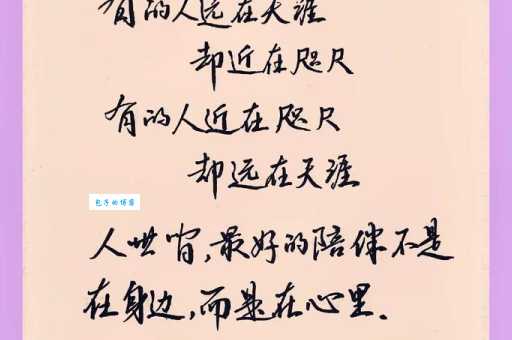 有的人远在天涯
却近在咫尺
有的人近在咫尺
却远在天涯
人世间,最好的陪伴不是
在身边,而是在心里.